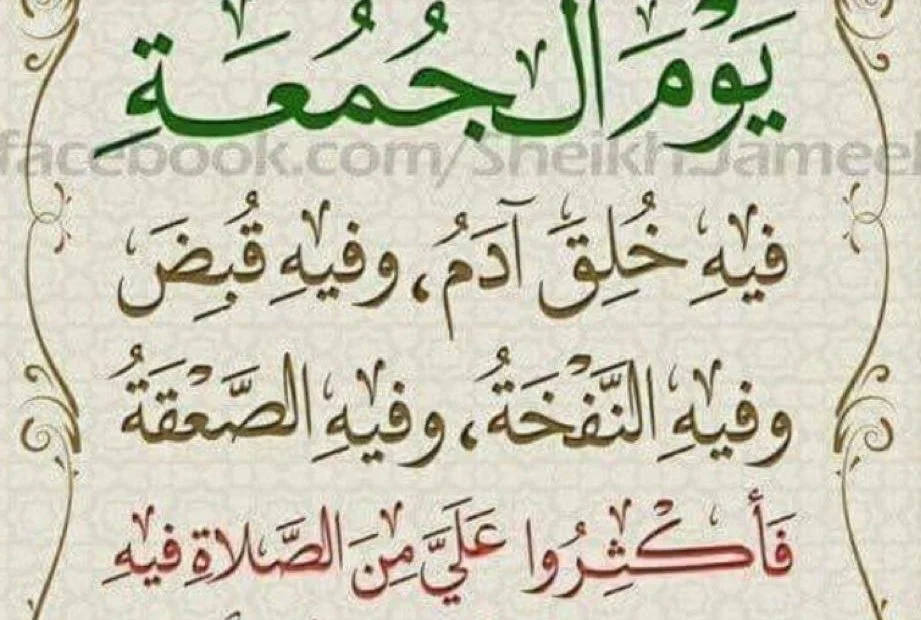 يَوْمَ الْجُمُعَةِ
facebook.com/SheikhJameel
فِيْهِ خُلِقَ آدَمُ، وفِيْهِ قُبِضَ
وفِيْهِ النَّفْخَةُ، وفِيْهِ الصَّعْقَةُ
فَأَكْثِرُوا عَلَيَّ مِنَ الصَّلاةِ فِيْهِ